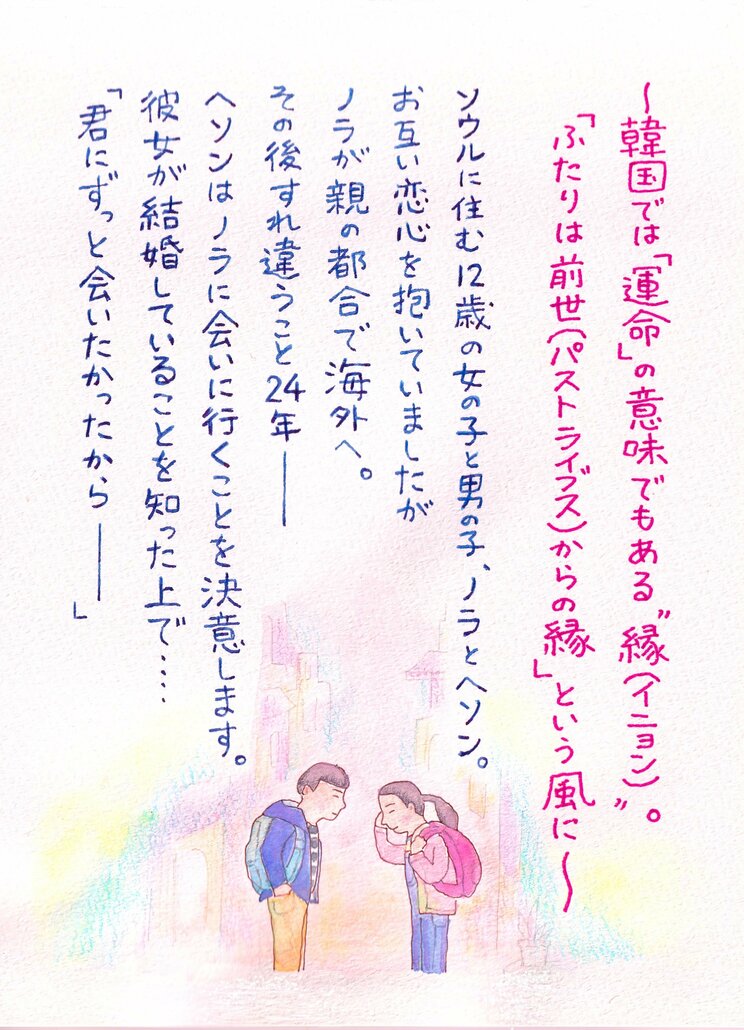 〜韓国では「運命」の意味でもある〝縁(イニョン)〟。
「ふたりは前世(パストライブス)からの縁」という風に〜
ソウルに住む12歳の女の子と男の子、ノラとヘソン。
お互い恋心を抱いていましたが
ノラが親の都合で海外へ。
その後すれ違うこと24年——
ヘソンはノラに会いに行くことを決意します。
彼女が結婚していることを知った上で……
「君にずっと会いたかったから——」